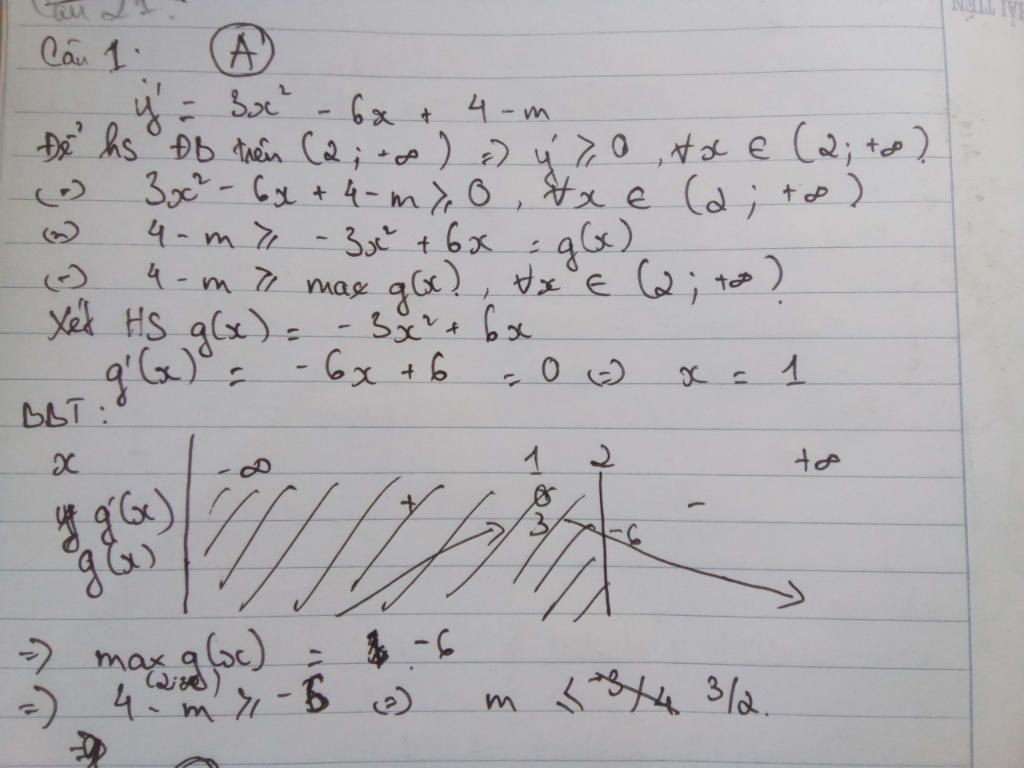 Câu 1: A
y' = 3x² - 6x + 4 - m
Để hs ĐB trên (2; +∞) => y' ≥ 0, ∀x ∈ (2; +∞)
(=) 3x² - 6x + 4 - m ≥ 0, ∀x ∈ (2; +∞)
(=) 4 - m ≥ - 3x² + 6x = g(x)
(=) 4 - m ≥ max g(x), ∀x ∈ (2; +∞)
Xét HS g(x) = - 3x² + 6x
g'(x) = - 6x + 6 = 0 (=) x = 1
BBT:
x -∞ 1 2 +∞
g'(x) + 0 -
g(x) 3 -6
=> max g(x) = -6
=> 4 - m ≥ -6 (=) m ≤ 3/2.